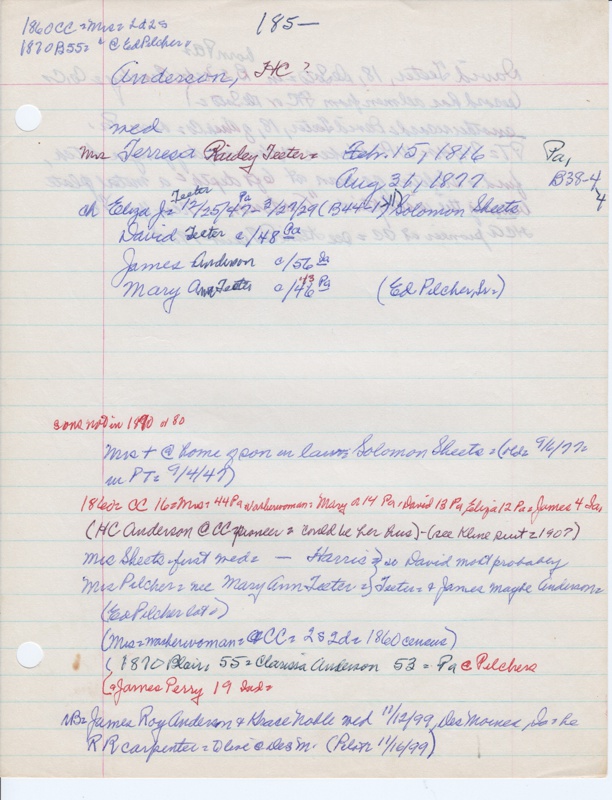 185-
1860 CC = Mrs = 2d2s
1870 B55 = " @ Ed Pilcher =
Anderson, HC?
med
Mrs Terresa Teeter = Feb. 15, 1816 Pa,
Aug 31, 1877 B38-4
4
ch Eliza J = Teeter 12/25/47 Pa = 2/27/29 (B44-1) Solomon Sheets
David Teeter c/48 Pa
James Anderson c/56 Ia
Mary Ann Teeter c/46 '43 Pa (Ed Pilcher, Sr =)
sons not in 1870 or 80
Mrs + @ home of son in law = Solomon Sheets = 9/6/77 =
in PT = 9/4/47)
1860 = CC 16 = Mrs = 44 Pa washerwoman = Mary 14 Pa = David 13 Pa, Eliza 12 Pa = James 4 Ia,
(HC Anderson @ CC pioneer = could be her hus) - (see Kline suit = 190?)
Mrs Sheets = first med = — Harris = so David most probably
Mrs Pilcher = nee Mary Ann Teeter = } Teeter = & James maybe Anderson =
(Ed Pilcher )
(Mrs = washerwoman = @ CC = 2s2d = 1860 census)
( 1870 Blair, 55 = Clarissa Anderson 53 = Pa @ Pilchers
{ = James Perry 19 Ind =
NB = James Roy Anderson & Grace Noble med 11/12/99, Des Moines, Ia = he
RR carpenter = to live @ Des M. (Pilot 11/16/99)